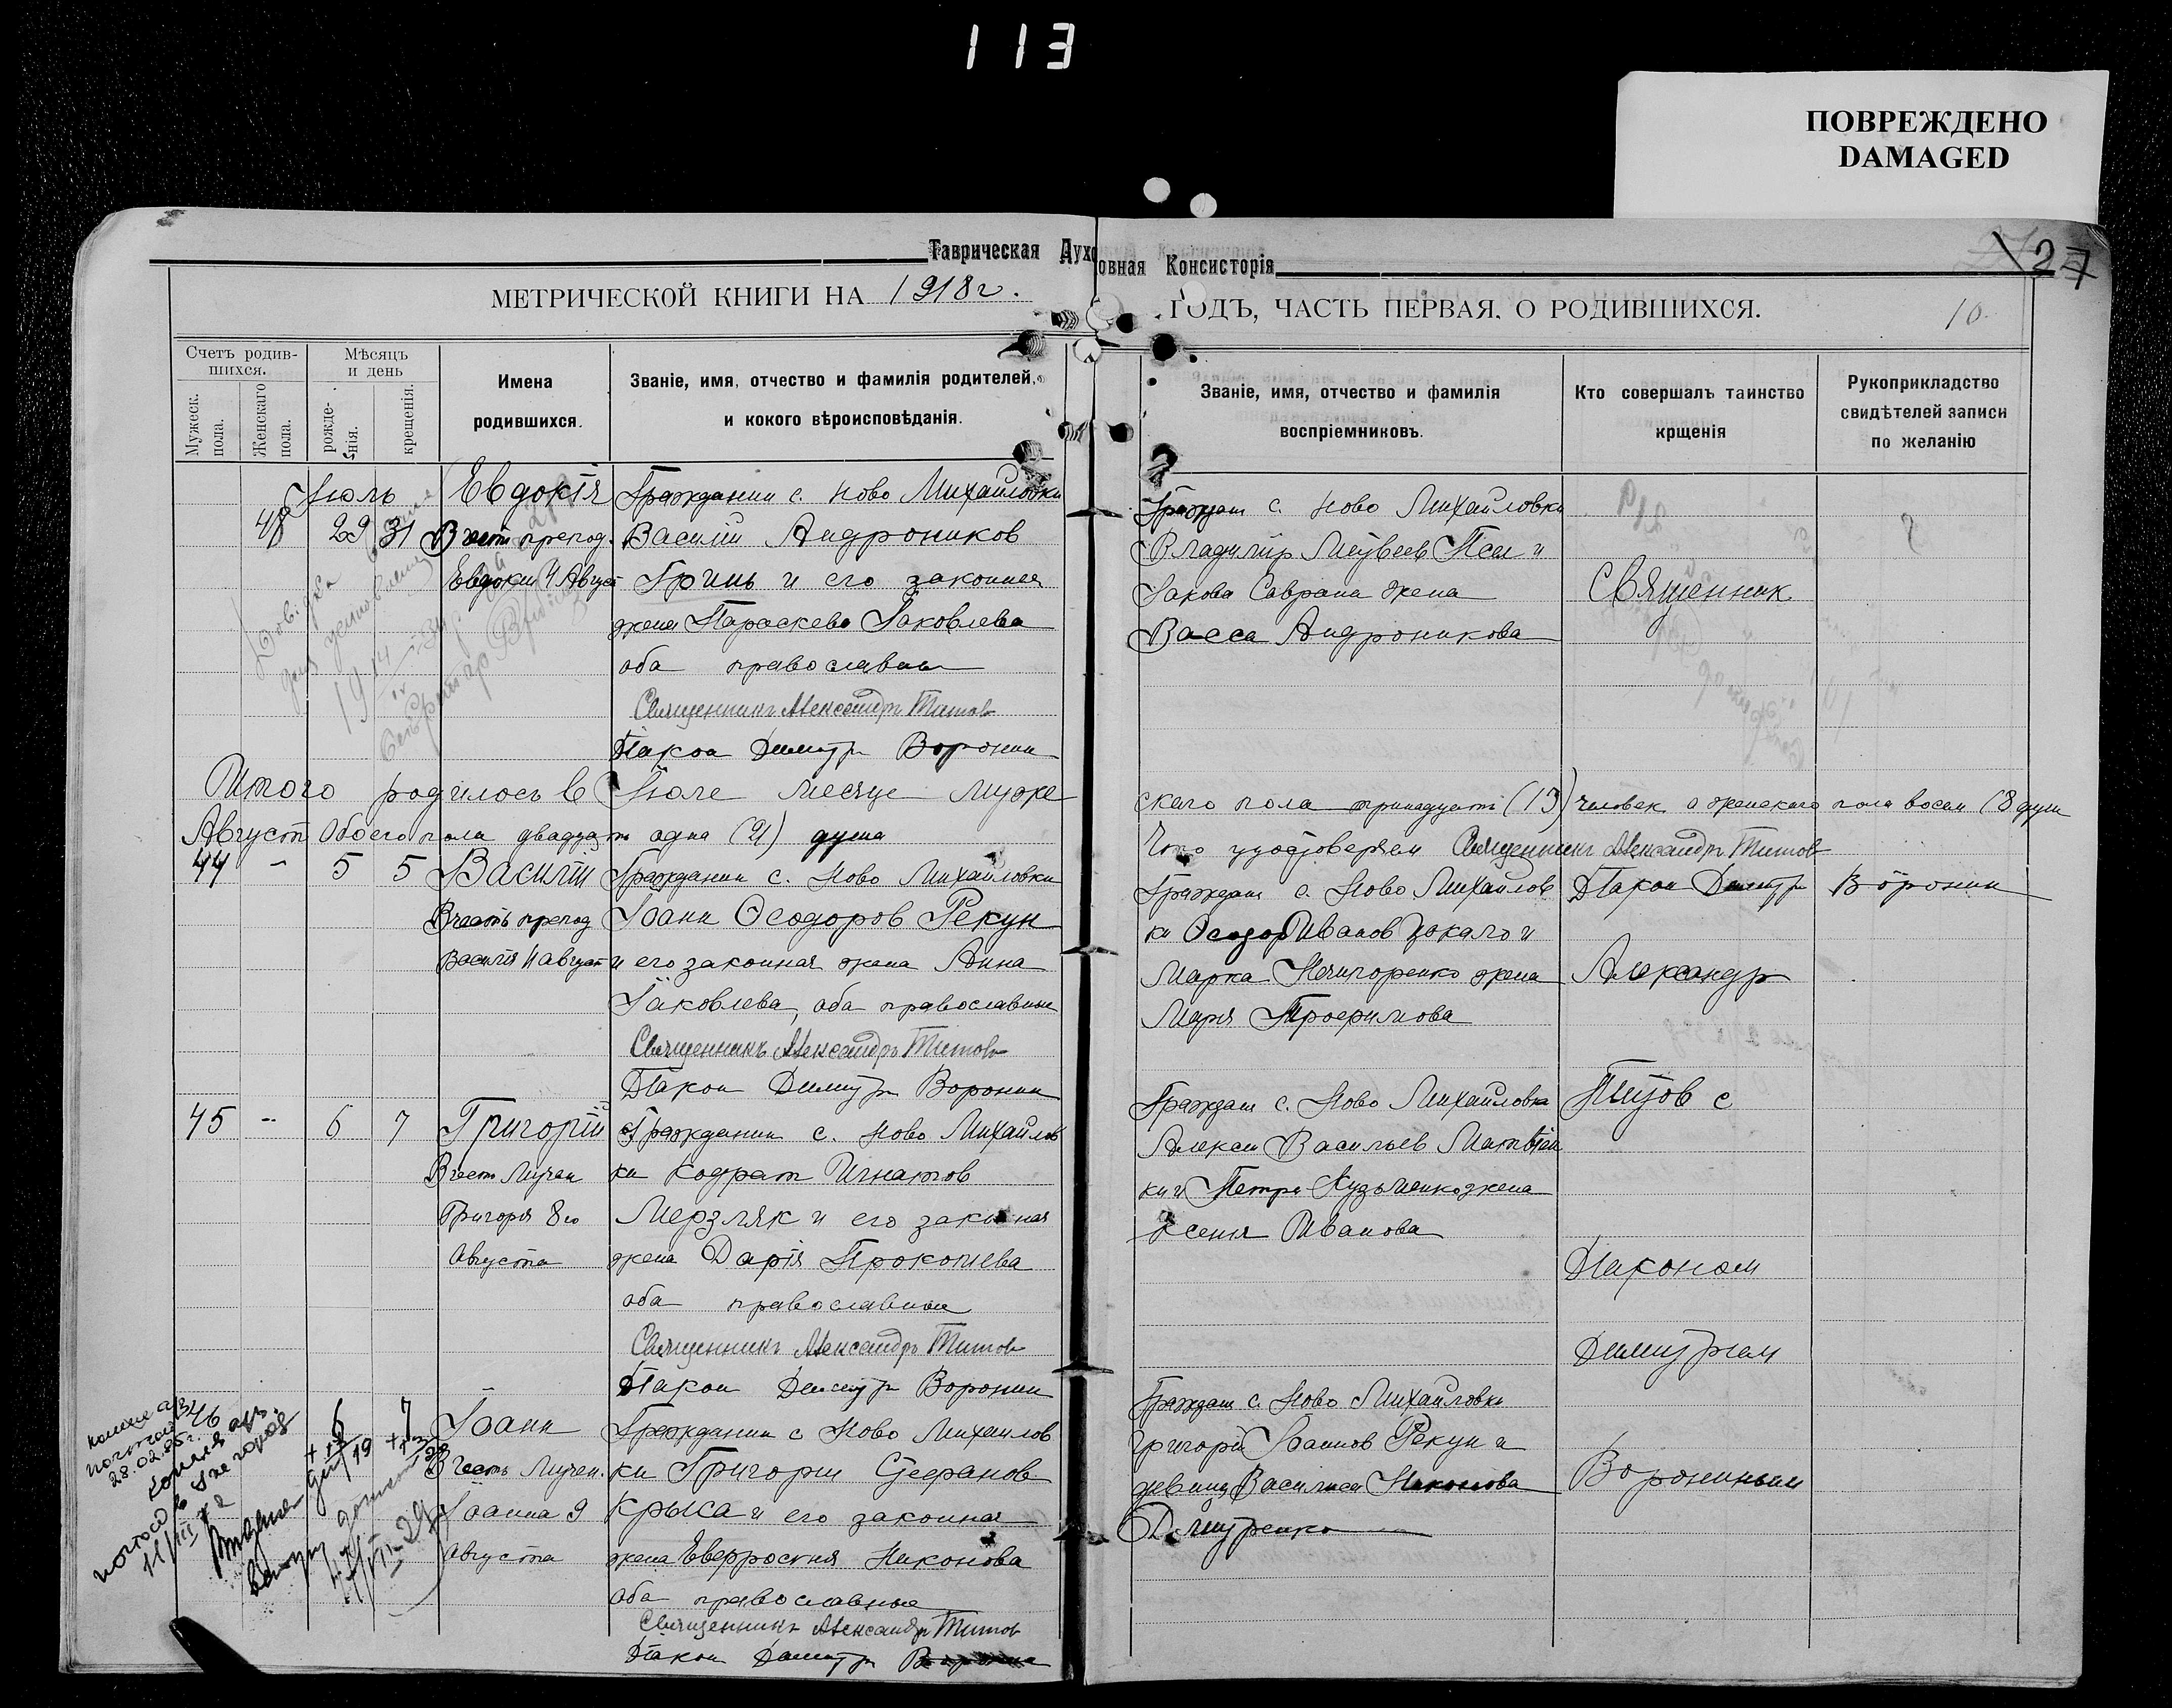 113
ПОВРЕЖДЕНО
DAMAGED
Таврическая Духовная Консисторія
27
МЕТРИЧЕСКОЙ КНИГИ НА 1918 г.
ГОДЪ, ЧАСТЬ ПЕРВАЯ, О РОДИВШИХСЯ.
10.
Счетъ родив-
шихся.
Мужеск. пола.
Женскаго пола.
Мѣсяцъ
и день
рожде-
нія.
крещенія.
Имена
родившихся.
Званіе, имя, отчество и фамилія родителей,
и кокого вѣроисповѣданія.
Званіе, имя, отчество и фамилія
воспріемниковъ.
Кто совершалъ таинство
крщенія
Рукоприкладство
свидѣтелей записи
по желанію
Июль
48 29 31
Евдокія
В честь препод.
Евдокии 4 Август
Гражданин с. Ново Михайловки
Василий Андроников
Гринь и его законная
жена Параскева Іаковлева
оба православны
Священникъ Александръ Титов
Діакон Димитр Воронин
Граждан с. Ново Михайловки
Владимір
Іакова Саврана жена
Васса Андроникова
Священник
Итого родилось в Іюле месяце муже
ского пола тринадцать (13) человек а женскаго пола восем (8 души
Август обоего пола двадцать одна (21) душа
Что удостоверяем Священникъ Александръ Титов
Діакон Димитр Воронин
44 - 5 5
Василій
В честь препод
Василія 11 август
Гражданин с. Ново Михайловки
Іоанн Ѳеодоров Рекун
и его законная жена Анна
Іаковлева, оба православны
Священникъ Александръ Титов
Діакон Димитр Воронин
Граждан с. Ново Михайлов
ки Ѳеодор Иванов Цокало и
Марка Нечипоренко жена
Мария Трофимова
Александр
45 - 6 7
Григорій
В честь Мучен
Григория 8го
Августа
Гражданин с. Ново Михайлов
ки Кодрат Игнатов
Мерзляк и его законная
жена Дарія Прокопиева
оба православны
Священникъ Александръ Титов
Діакон Димитр Воронин
Граждан с. Ново Михайловка
Алексей Васильев
ки и Петра Кузьменко жена
Ксения Иванова
Титов с
Діаконом
Димитрием
46 6 7
Іоанн
В честь Мучен.
Іоанна 9
Августа
Гражданин с Ново Михайлов
ки Григорий Стефанов
Крыса и его законная
жена Евфросиния Никонова
оба православные
Священникъ Александръ Титов
Діакон Димитр Воронин
Граждан с. Ново Михайловки
Григорий Іоаннов Рекун и
девица Василиса Никонова
Дмитренко
Ворониным
28.02.85 г.